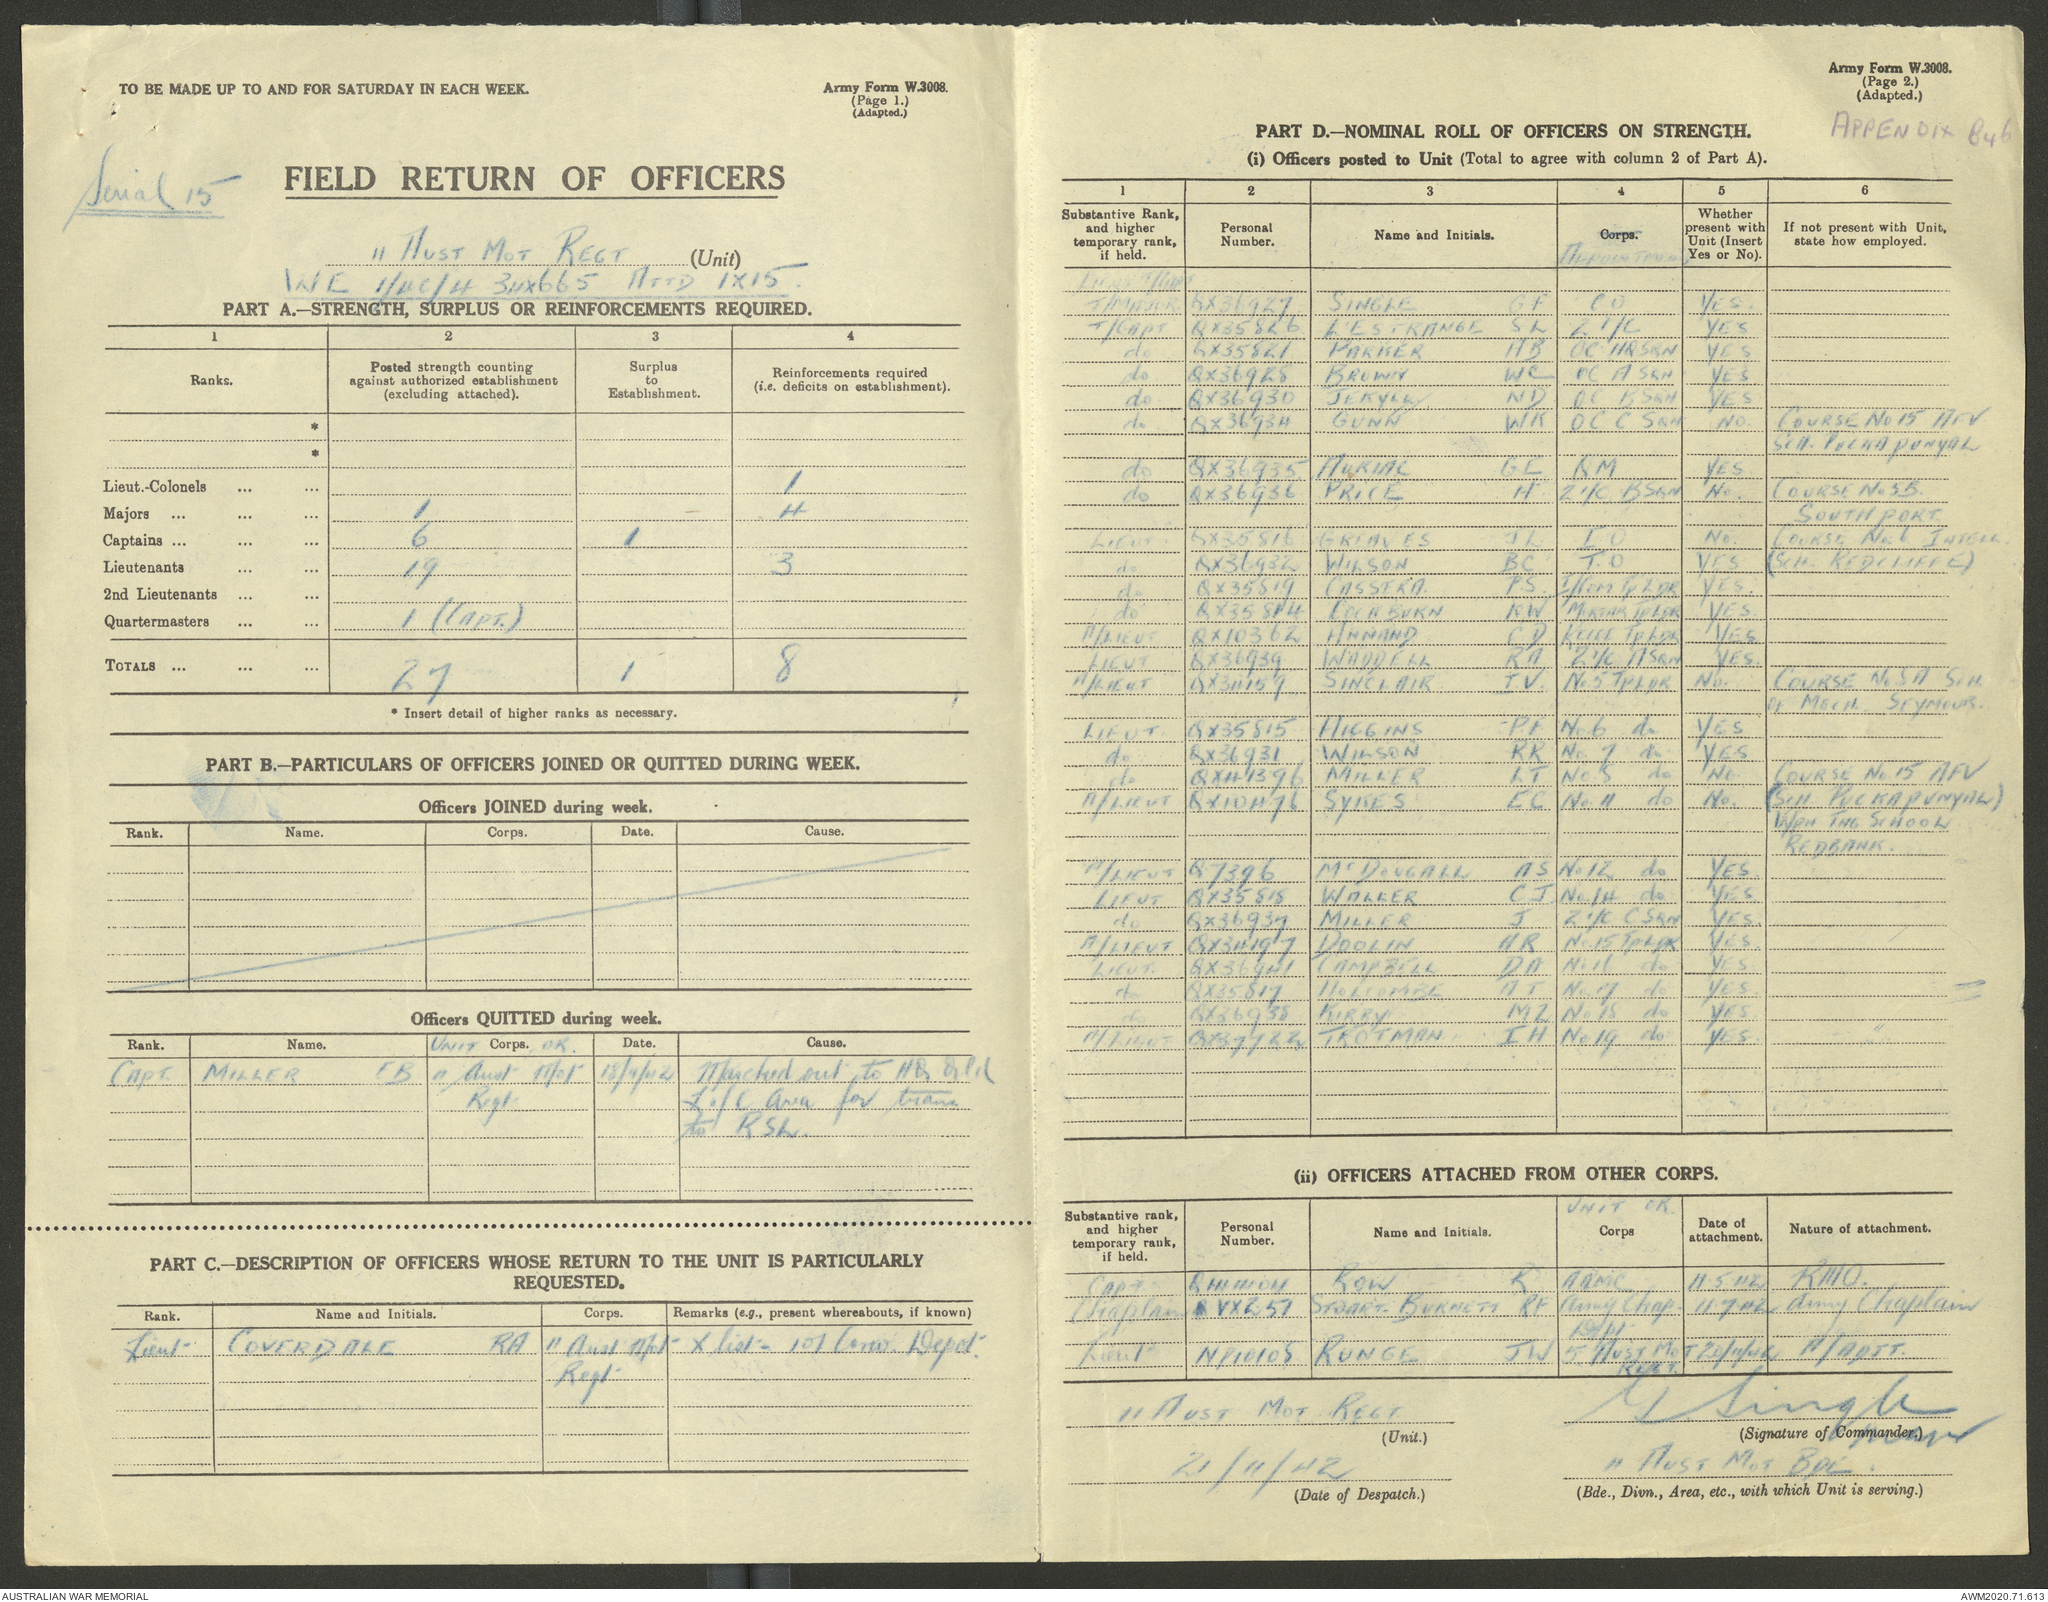 TO BE MADE UP TO AND FOR SATURDAY IN EACH WEEK.
Army Form W.3008.
(Page 1.)
(Adapted.)
Serial 15
FIELD RETURN OF OFFICERS
11 AUST MOT REGT (Unit)
WE 1/4C/4 3HX665 ATTD 1X15.
PART A.—STRENGTH, SURPLUS OR REINFORCEMENTS REQUIRED.
1 2 3 4
Ranks. Posted strength counting against authorized establishment (excluding attached). Surplus to Establishment. Reinforcements required (i.e. deficits on establishment).
*
*
Lieut.-Colonels ... ... 1
Majors ... ... ... 1 4
Captains ... ... ... 6 1
Lieutenants ... ... 19 3
2nd Lieutenants ... ...
Quartermasters ... ... 1 (CAPT.)
TOTALS ... ... ... 27 1 8
* Insert detail of higher ranks as necessary.
PART B.—PARTICULARS OF OFFICERS JOINED OR QUITTED DURING WEEK.
Officers JOINED during week.
Rank. Name. Corps. Date. Cause.
Officers QUITTED during week.
Rank. Name. UNIT OR Corps. Date. Cause.
CAPT. MILLER EB 11 Aust Mot 18/11/42 Marched out to HQ Qld
Regt L of C Area for trans
to RSL.
PART C.—DESCRIPTION OF OFFICERS WHOSE RETURN TO THE UNIT IS PARTICULARLY
REQUESTED.
Rank. Name and Initials. Corps. Remarks (e.g., present whereabouts, if known)
Lieut COVERDALE RA 11 Aust Mot X list - 101 Conv. Depot.
Regt
Army Form W.3008.
(Page 2.)
(Adapted.)
APPENDIX B46
PART D.—NOMINAL ROLL OF OFFICERS ON STRENGTH.
(i) Officers posted to Unit (Total to agree with column 2 of Part A).
1 2 3 4 5 6
Substantive Rank, and higher temporary rank, if held. Personal Number. Name and Initials. Corps. APPOINTMENT Whether present with Unit (Insert Yes or No). If not present with Unit, state how employed.
T/MAJOR QX36927 SINGLE GF CO YES.
T/CAPT QX35826 L'ESTRANGE SL 2 I/C YES
do QX35821 PARKER AB OC HQ SQN YES
do QX36928 BROWN WC OC A SQN YES
do QX36930 JEKYLL ND OC B SQN YES
do QX36934 GUNN WK OC C SQN NO. COURSE No 15 AFV
SCH. PUCKAPUNYAL
do QX36935 GE QM YES
do QX36936 PRICE H 2 I/C B SQN No. COURSE No 5B.
SOUTHPORT.
LIEUT. QX35816 GREAVES JL I O No. COURSE No 6 INTELL.
do QX36932 WILSON BC T.O YES (SCH. REDCLIFFE)
do QX35819 CASSERA P.S. I/COM TP LDR YES.
do QX35814 COCKBURN KW MORTAR TP LDR YES.
A/LIEUT QX10362 HANNAND CD RECCE TP LDR YES
LIEUT QX36939 WADDELL RA 2 I/C A SQN YES.
A/LIEUT QX34159 SINCLAIR T.V. No 5 TP LDR No. COURSE No 5A SCH.
OF MECH. SEYMOUR.
LIEUT. QX35815 HIGGINS PF No. 6 do YES
do QX36931 WILSON RR No. 7 do YES
do QX41396 MILLER LT No 8 do No. COURSE No. 15 AFV
A/LIEUT QX10476 SYKES EC No. 11 do No. (SCH. PUCKAPUNYAL)
WPN TNG SCHOOL
REDBANK.
A/LIEUT Q7396 McDOUGALL AS No 12 do YES.
LIEUT QX35818 WALLER CJ No. 14 do YES
do QX36937 MILLER J 2 I/C C SQN YES.
A/LIEUT QX34197 DOOLIN HR No. 15 TP LDR YES
LIEUT. QX36941 CAMPBELL DA No. 16 do YES
do QX35817 HOLCOMBE AT No. 17 do YES.
do QX36938 KIRBY MZ No. 18 do YES.
A/LIEUT QX37722 TROTMAN IH No. 19 do YES.
(ii) OFFICERS ATTACHED FROM OTHER CORPS.
Substantive rank, and higher temporary rank, if held. Personal Number. Name and Initials. UNIT OR Corps Date of attachment. Nature of attachment.
CAPT ROW R AAMC 11.5.42 RMO.
Chaplain VX257 STUART-BURNETT RF Army Chap. 11.7.42 Army Chaplain
Dept
Lieut NP10108 RUNGE JW 5 AUST MOT 20/11/42 A/ADJT.
REGT.
11 AUST MOT REGT
(Unit.)
G Single
(Signature of Commander.)
Major
21/11/42
(Date of Despatch.)
11 AUST MOT BDE.
(Bde., Divn., Area, etc., with which Unit is serving.)
AUSTRALIAN WAR MEMORIAL
AWM2020.71.613